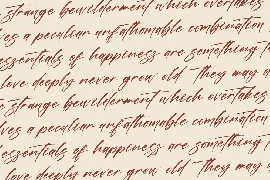 strange bewilderment which overtakes
ves a peculiar unfathomable combination
essentials of happiness are something
love deeply never grow old They may d
e strange bewilderment which overtakes
ves a peculiar unfathomable combination
essentials of happiness are something
love deeply never grow old They may